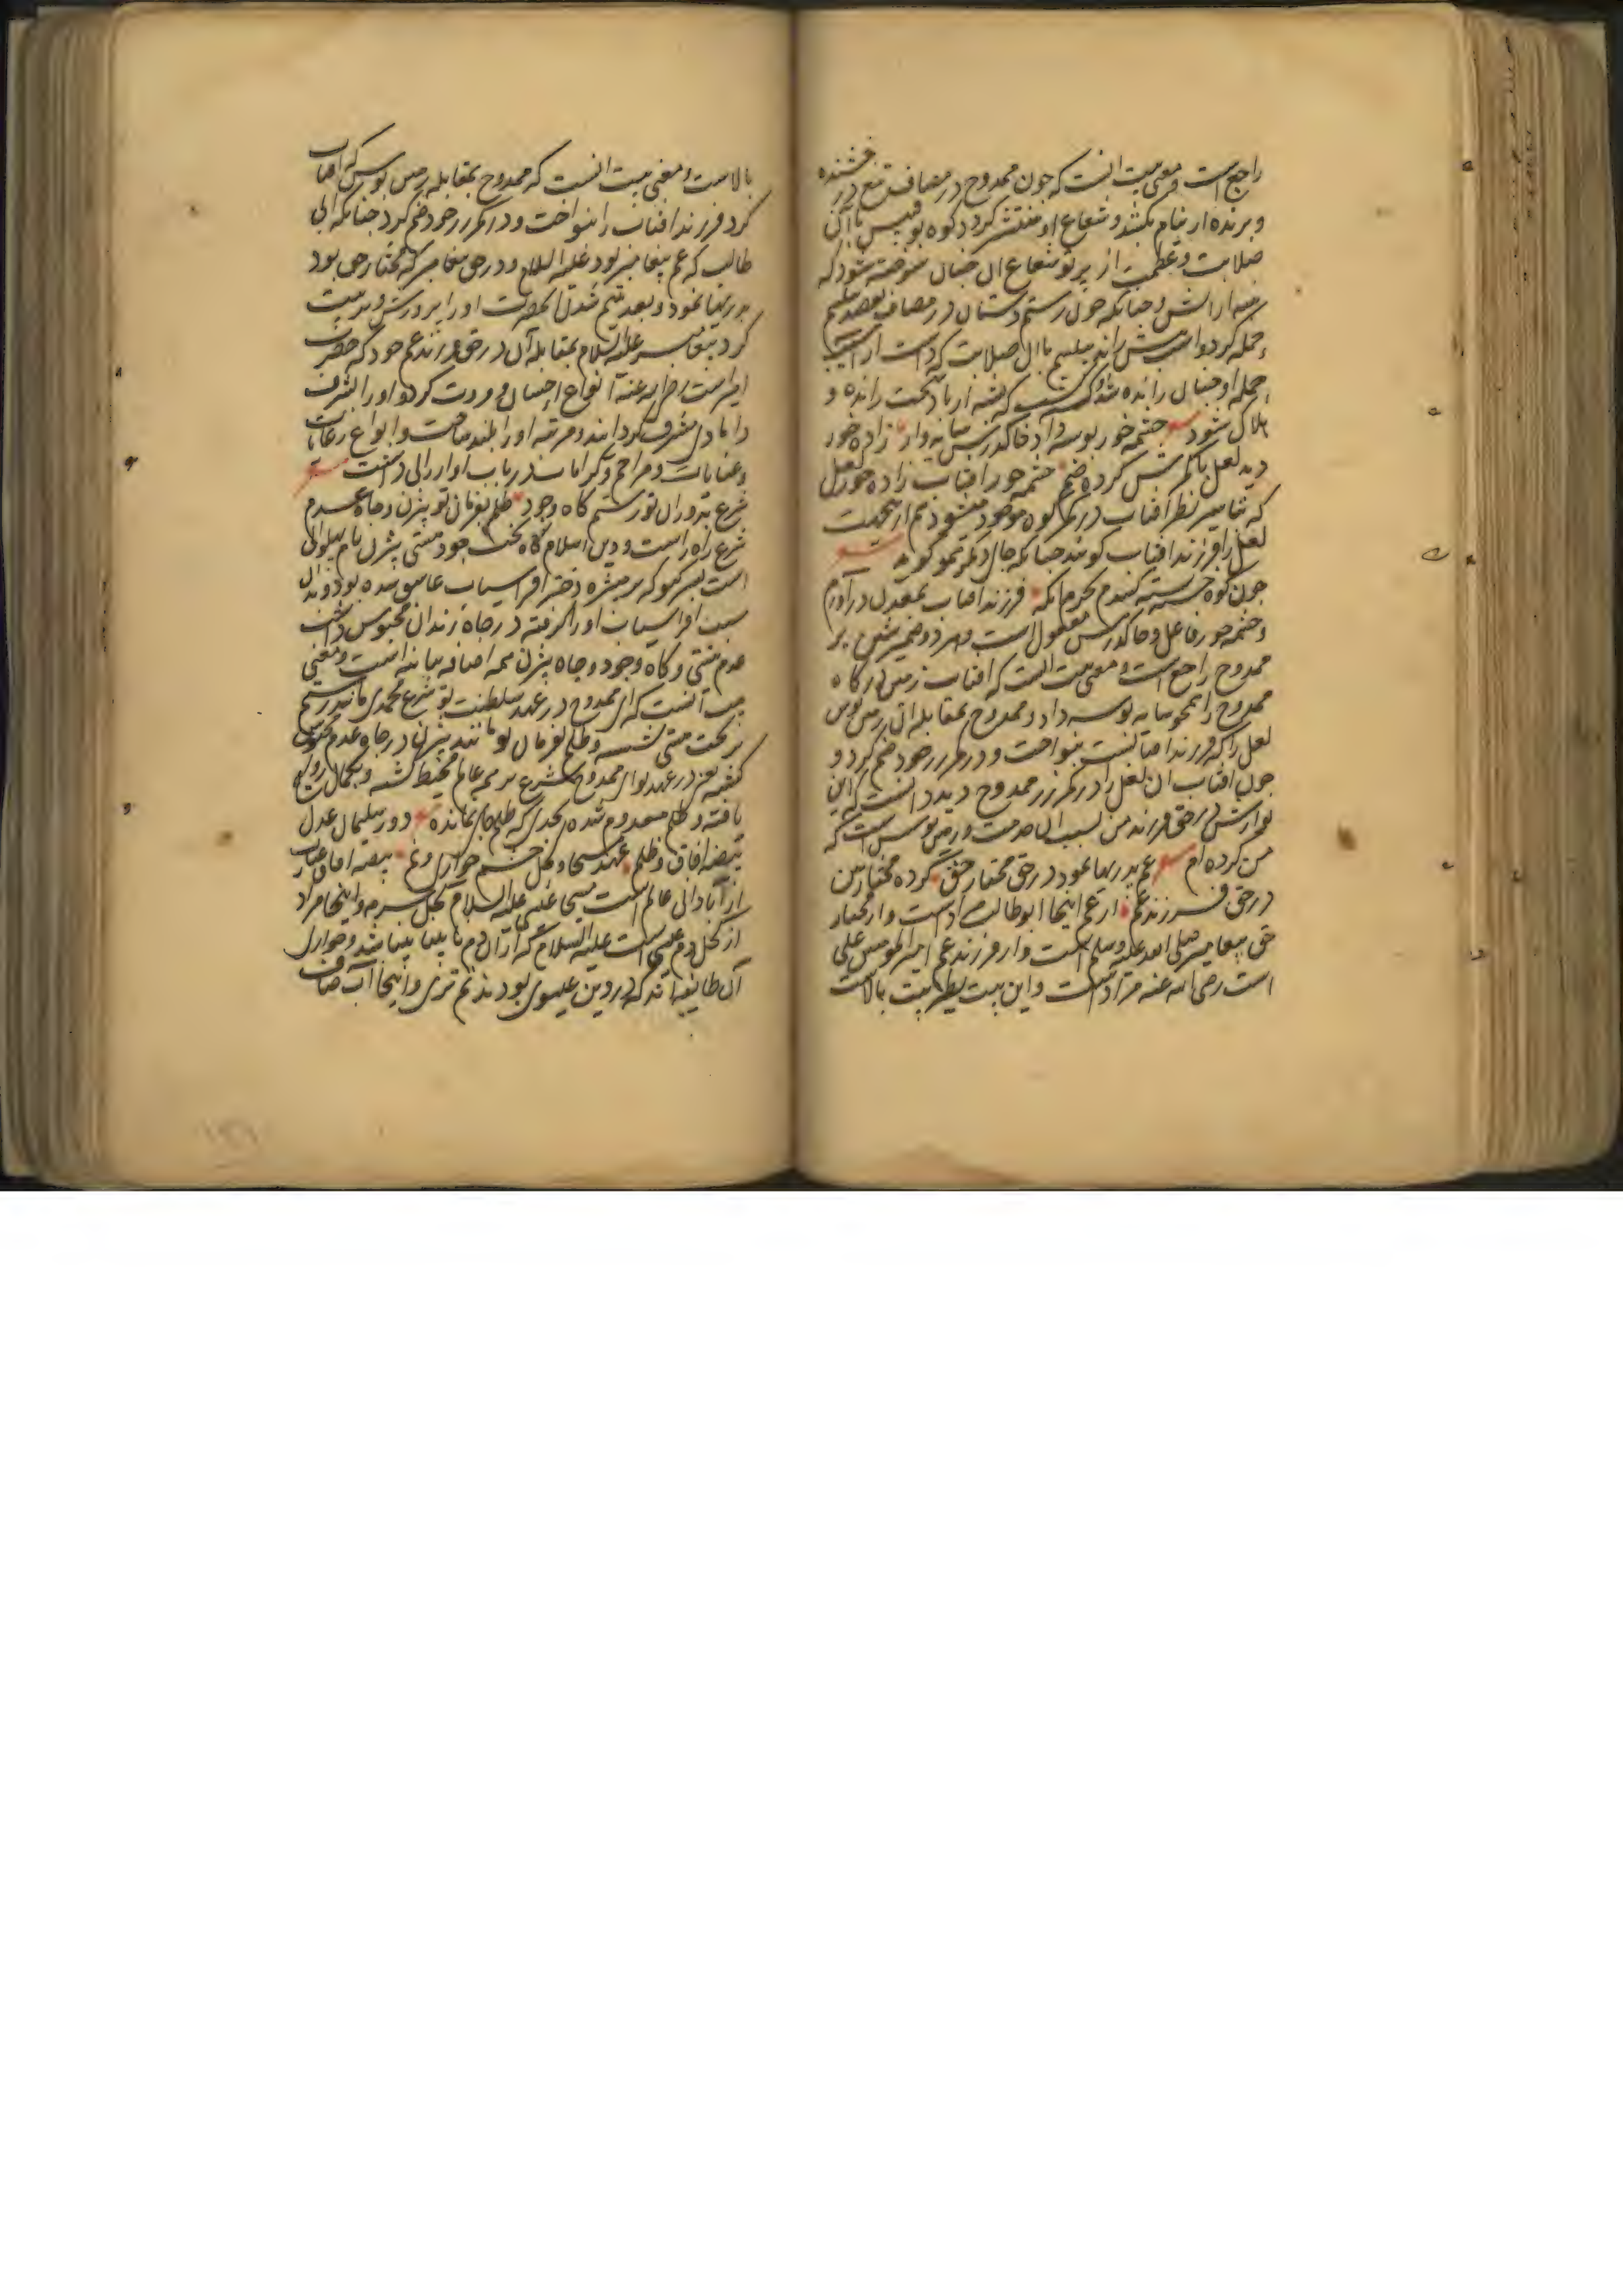 راجع است و معنی بیت آنست که چون ممدوح در مصاف تیغ درخشنده
و برنده از نیام بکشد و شعاع او منتشر گردد کوه بوقبیس با آن
صلابت و عظمت از پرتو شعاع آن چنان سوخته شود که
پنبه از آتش و چنانکه چون رستم دستان در مصاف بقصد
حمله کرد و اسب پیش راند با آن صلابت که داشت از آسیب
حمله او چنان رانده شد که کشته از باد سخت رانده و
هلاک شود چشمه خور بوسه داد خاک درش سایه وار زاده خور
دید لعل با کمرش کرده ضم چشمه خور آفتاب زاده خور لعل
که بتاثیر نظر آفتاب در کوه موجود میشود هم ازین جهت
لعل را فرزند آفتاب گویند چنانکه جای دیگر گوید
چون کوه خسته کندم بجرم آنکه فرزند آفتاب بمعدن درآورم
و چشمه خور فاعل و خاک درش مفعول است و هر دو ضمیر شین بر
ممدوح راجع است و معنی بیت آنست که آفتاب زمین درگاه
ممدوح را همچو سایه بوسه داد و ممدوح بمقابله آن زمین بوس
لعل را که فرزند آفتابست بنواخت و در کمر زر خود ضم کرد و
چون آفتاب آن لعل را در کمر زر ممدوح دید دانست که این
نوازش در حق فرزند من بسبب آن خدمت و زمین بوس است که
من کرده ام عم پدریها نمود در حق مختار حق کرده مختار بین
در حق فرزند عم از عم اینجا ابوطالب مراد است و از مختار
حق پیغامبر صلی الله علیه وسلم است و از فرزند عم امیرالمومنین علی
است رضی الله عنه مراد است و این بیت نظیر بیت بالاست
بالاست و معنی بیت آنست که ممدوح بمقابله زمین بوس که آفتاب
کرد فرزند آفتاب را بنواخت و در کمر زر خود ضم کرد چنانکه ابی
طالب که عم پیغامبر بود علیه السلام و در حق پیغامبر که مختار حق بود
پدریها نمود و بعد یتیم شدن آنحضرت او را پرورش و تربیت
کرد پیغامبر علیه السلام بمقابله آن در حق فرزند عم خود که حضرت
امیر است رضی الله عنه انواع احسان و مروت کرد و او را بشرف
دامادی مشرف گردانید و مرتبه او را بلند ساخت و انواع رعایات
و عنایات و مراحم و کرامات در باب او ارزانی داشت
شرع بدوران تو رستم گاه وجود ظلم بفرمان تو بیژن و چاه عدم
شرع راه راست و دین اسلام گاه تخت وجود هستی بیژن نام پهلوانی
است پسر گیو که بر منیژه دختر افراسیاب عاشق شده بود و بدان
سبب افراسیاب او را گرفته در چاه زندان محبوس داشت
عدم نیستی و گاه وجود و چاه بیژن همه اضافه بیانیه است و معنی
بیت آنست که ای ممدوح در عهد سلطنت تو شرع محمدی مانند رستم
بر تخت هستی نشسته و ظلم بفرمان تو مانند بیژن در چاه عدم محبوس
گشته یعنی در عهد تو ای ممدوح شرع بر همه عالم محیط گشته و بکمال رواج
یافته و ظلم معدوم شده بحدی که ظلم جای نمانده دور سلیمان و عدل
بیضه آفاق و ظلم عهد مسیحا و کحل چشم حواری و نم بیضه آفاق عبارت
از آبادانی عالم است مسیحا عیسی علیه السلام کحل سرمه و اینجا مراد
از کحل دم عیسی است علیه السلام که از آن دم نابینا بینا میشد و حواری
آن طایفه اند که در دین عیسوی بودند نم تری و اینجا آب صاف